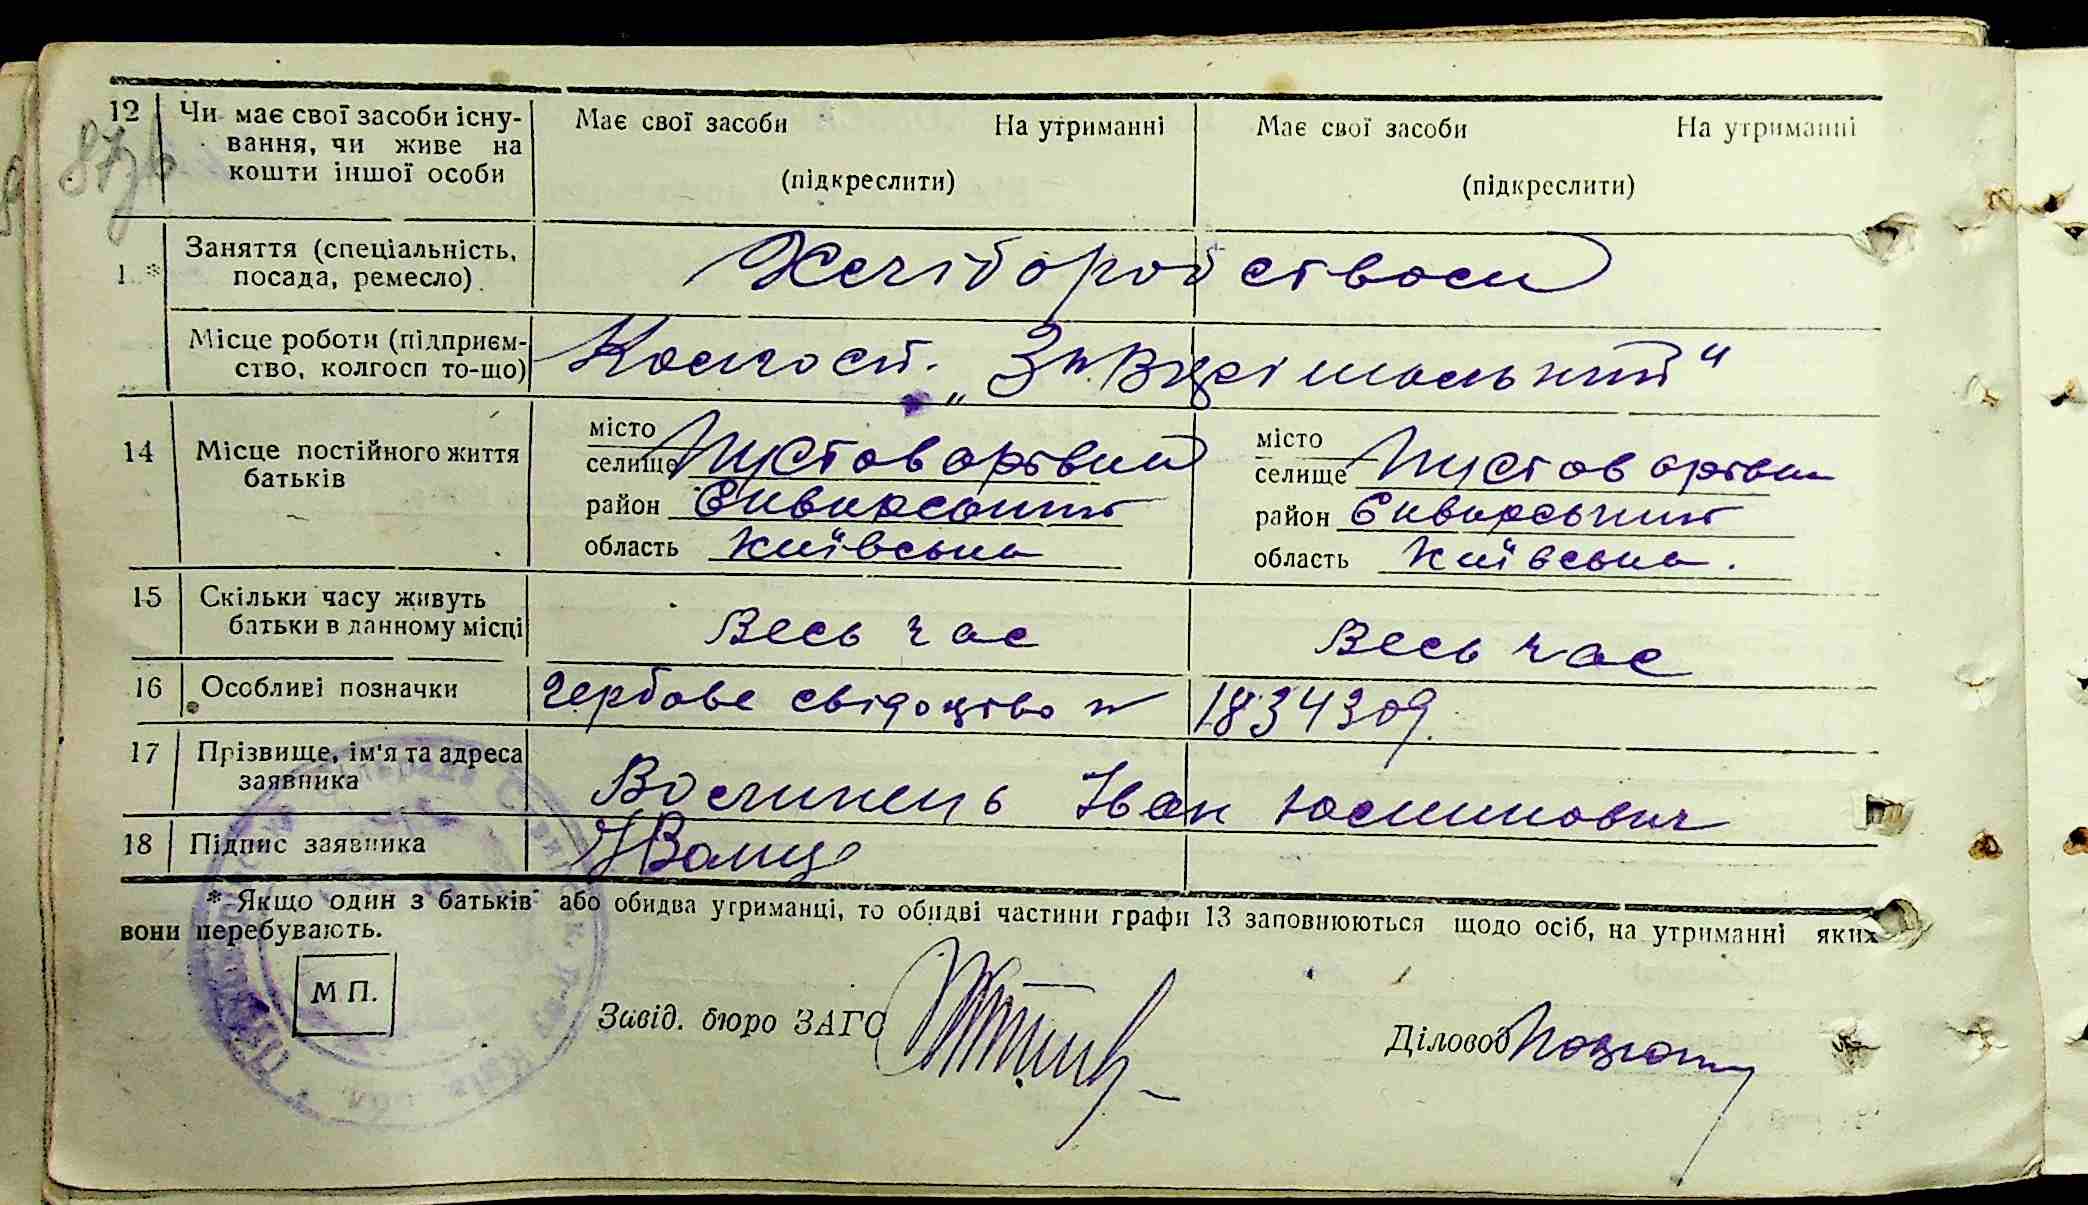 12 Чи має свої засоби існу- Має свої засоби На утриманні Має свої засоби На утриманні
вання, чи живе на
кошти іншої особи (підкреслити) (підкреслити)
Заняття (спеціальність, Хліборобством
1 * посада, ремесло)
Місце роботи (підприєм- Колгосп.
ство, колгосп то-що)
14 Місце постійного життя місто місто
батьків селище селище
район Сквирський район Сквирський
область Київська область Київська.
15 Скільки часу живуть Весь час Весь час
батьки в данному місці
16 Особливі позначки Гербове свідоцтво № 1834309.
17 Прізвище, ім'я та адреса Волинець Іван
заявника
18 Підпис заявника
* Якщо один з батьків або обидва утриманці, то обидві частини графи 13 заповнюються щодо осіб, на утриманні яких
вони перебувають.
М П.
Завід. бюро ЗАГС Діловод